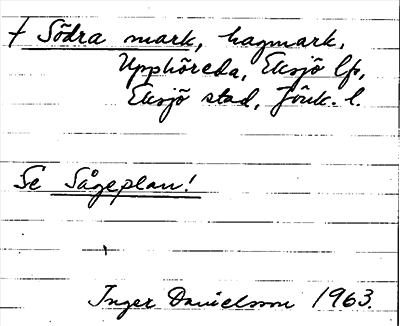 † Södra mark, hagmark,
Upphöreda, Eksjö lfs,
Eksjö stad, Jönk. l.
Se Sågeplan!
Inger Danielsson 1963.